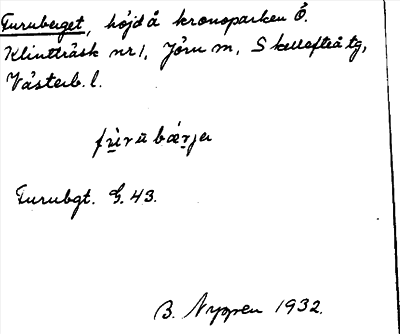 Furuberget, höjd å kronoparken Ö.
Klintträsk nr 1, Jörn sn, Skellefteå tg,
Västerb. l.
Furubgt. G. 43.
B. Nyppen 1932.